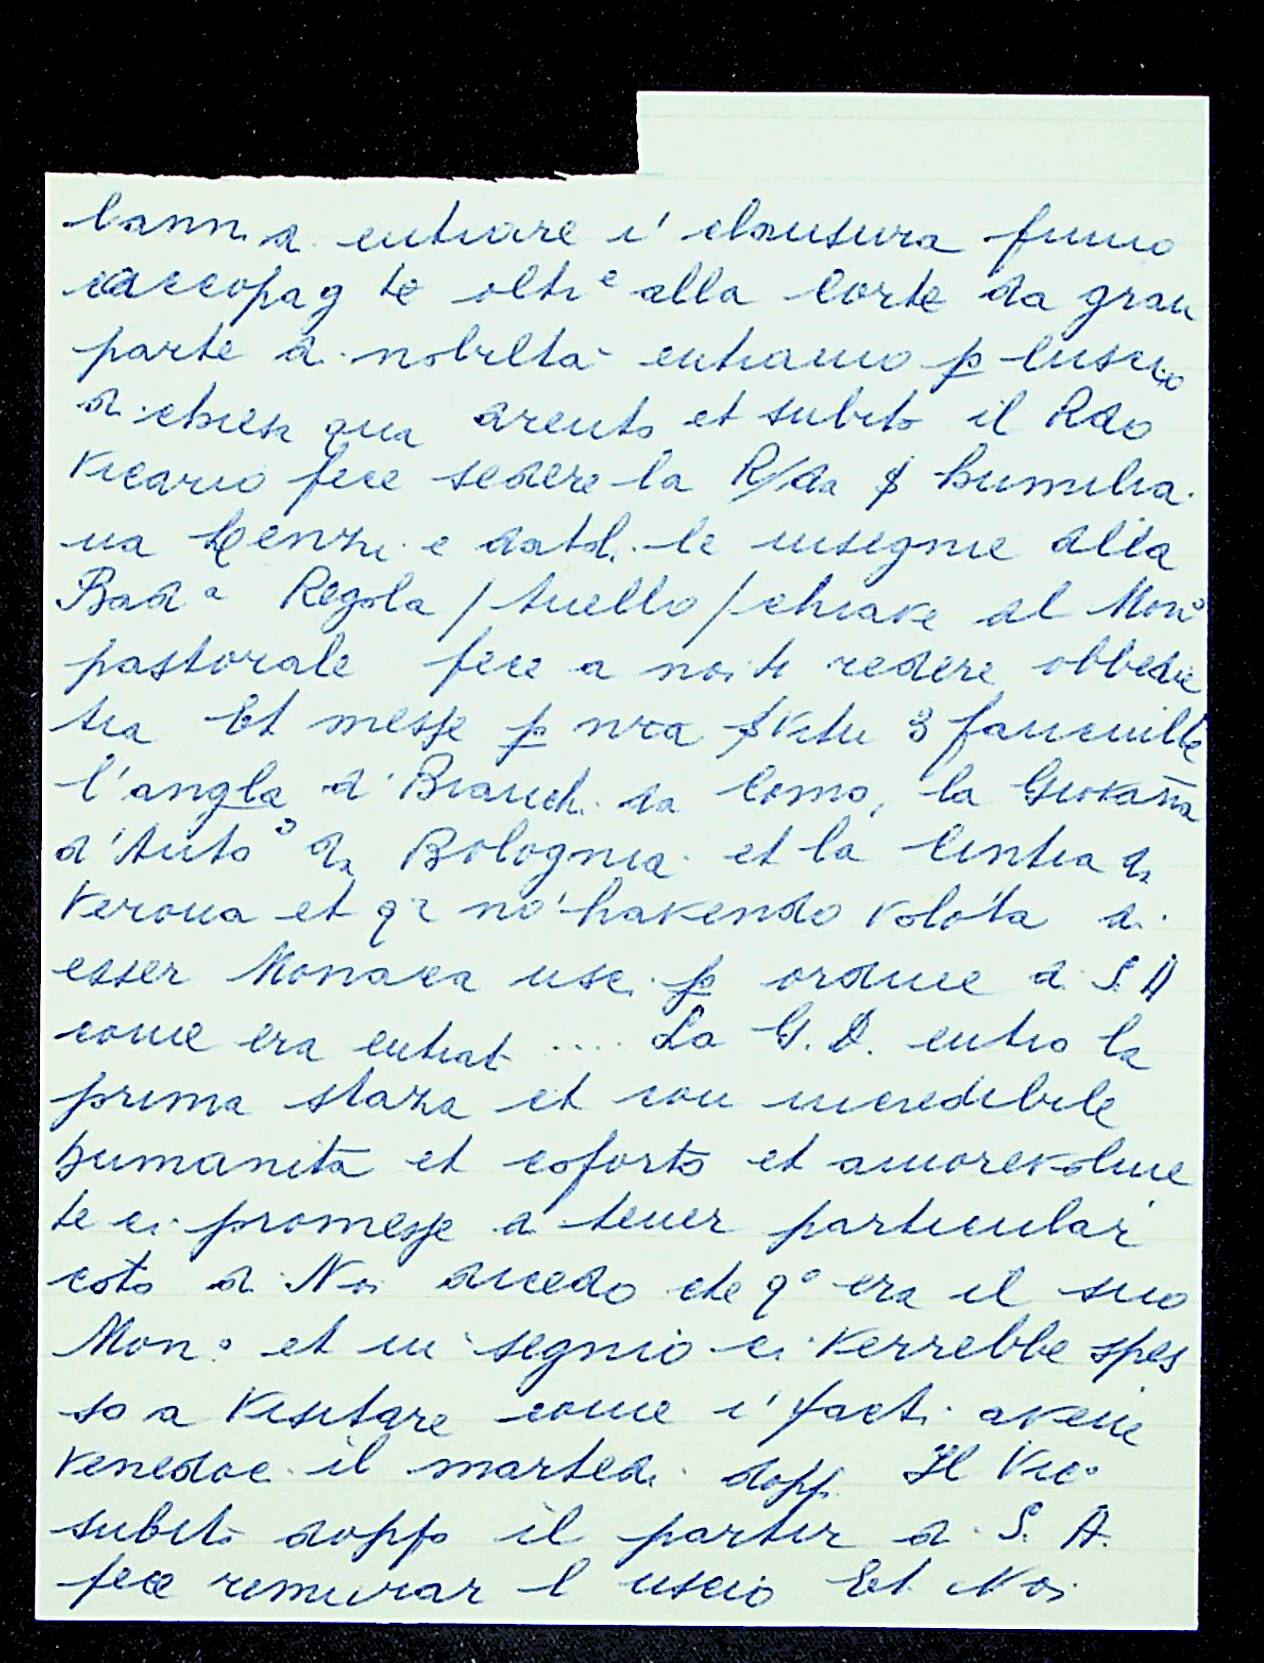 bann. a entrare i' clausura fumo
raccopag te oltr e alla Corte da gran
parte di nobilta entramo p luscio
di chiesa qua drento et subito il Rdo
Vicario fece sedere la R/da S humilia
na Lenzi e datoli le insegnie della
Bad a Regola / Anello / chiave del Mon o
pastorale fece a noi tt redere obbedie
tia Et messe p nra Svitu 3 fanciulle
l'angla d' Bianch. da Como, la Giovana
d'Anto o da Bolognia et la Cintia da
Verona et q a no' havendo volota di
esser Monaca usci p ordine di S. A
come era entrat .... La G. D. entro la
prima staza et con incredibile
humanita et coforto et amorevolme
te ci promesse di tener particular
coto di Noi dicedo che q o era il suo
Mon. o et in segnio ci verrebbe spes
so a visitare come i' facti avene
venedoc il martedi dopp. Il Vic o
subito doppo il partir di S. A.
fece remurar l uscio Et Noi